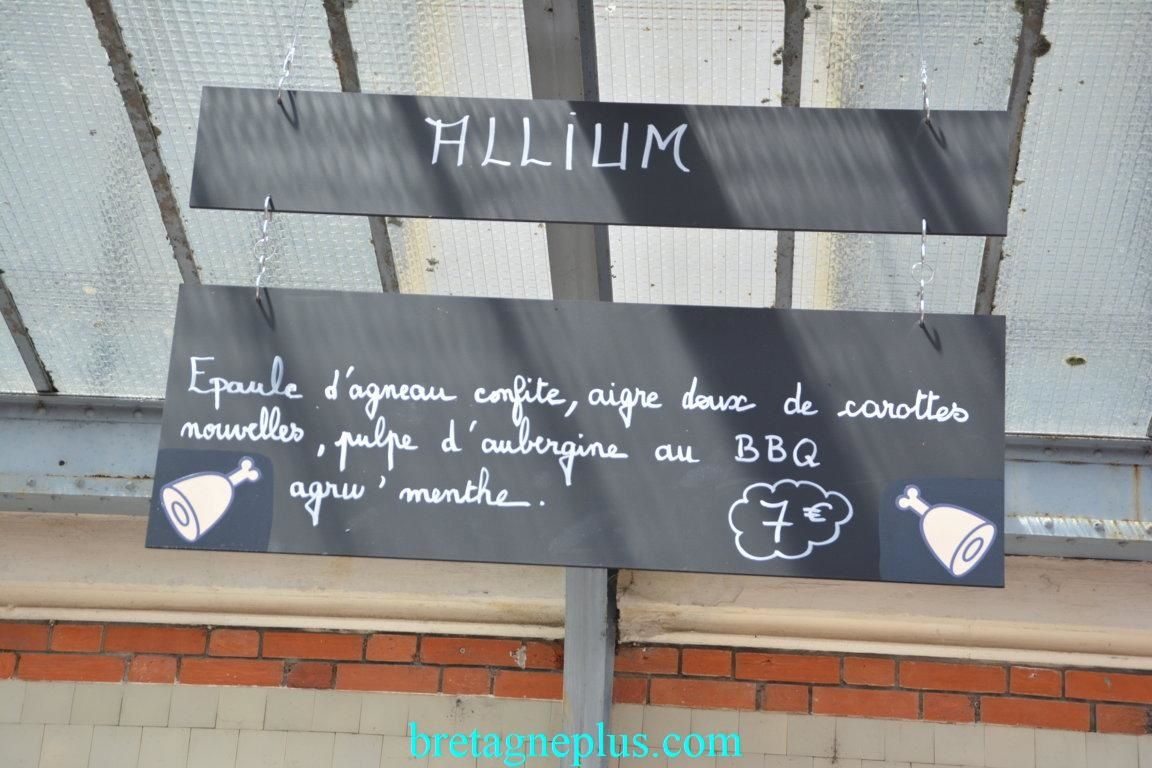 ALLiUM
Epaule d'agneau confite, aigre doux de carottes
nouvelles, pulpe d'aubergine au BBQ
agru' menthe.
7€
bretagneplus.com